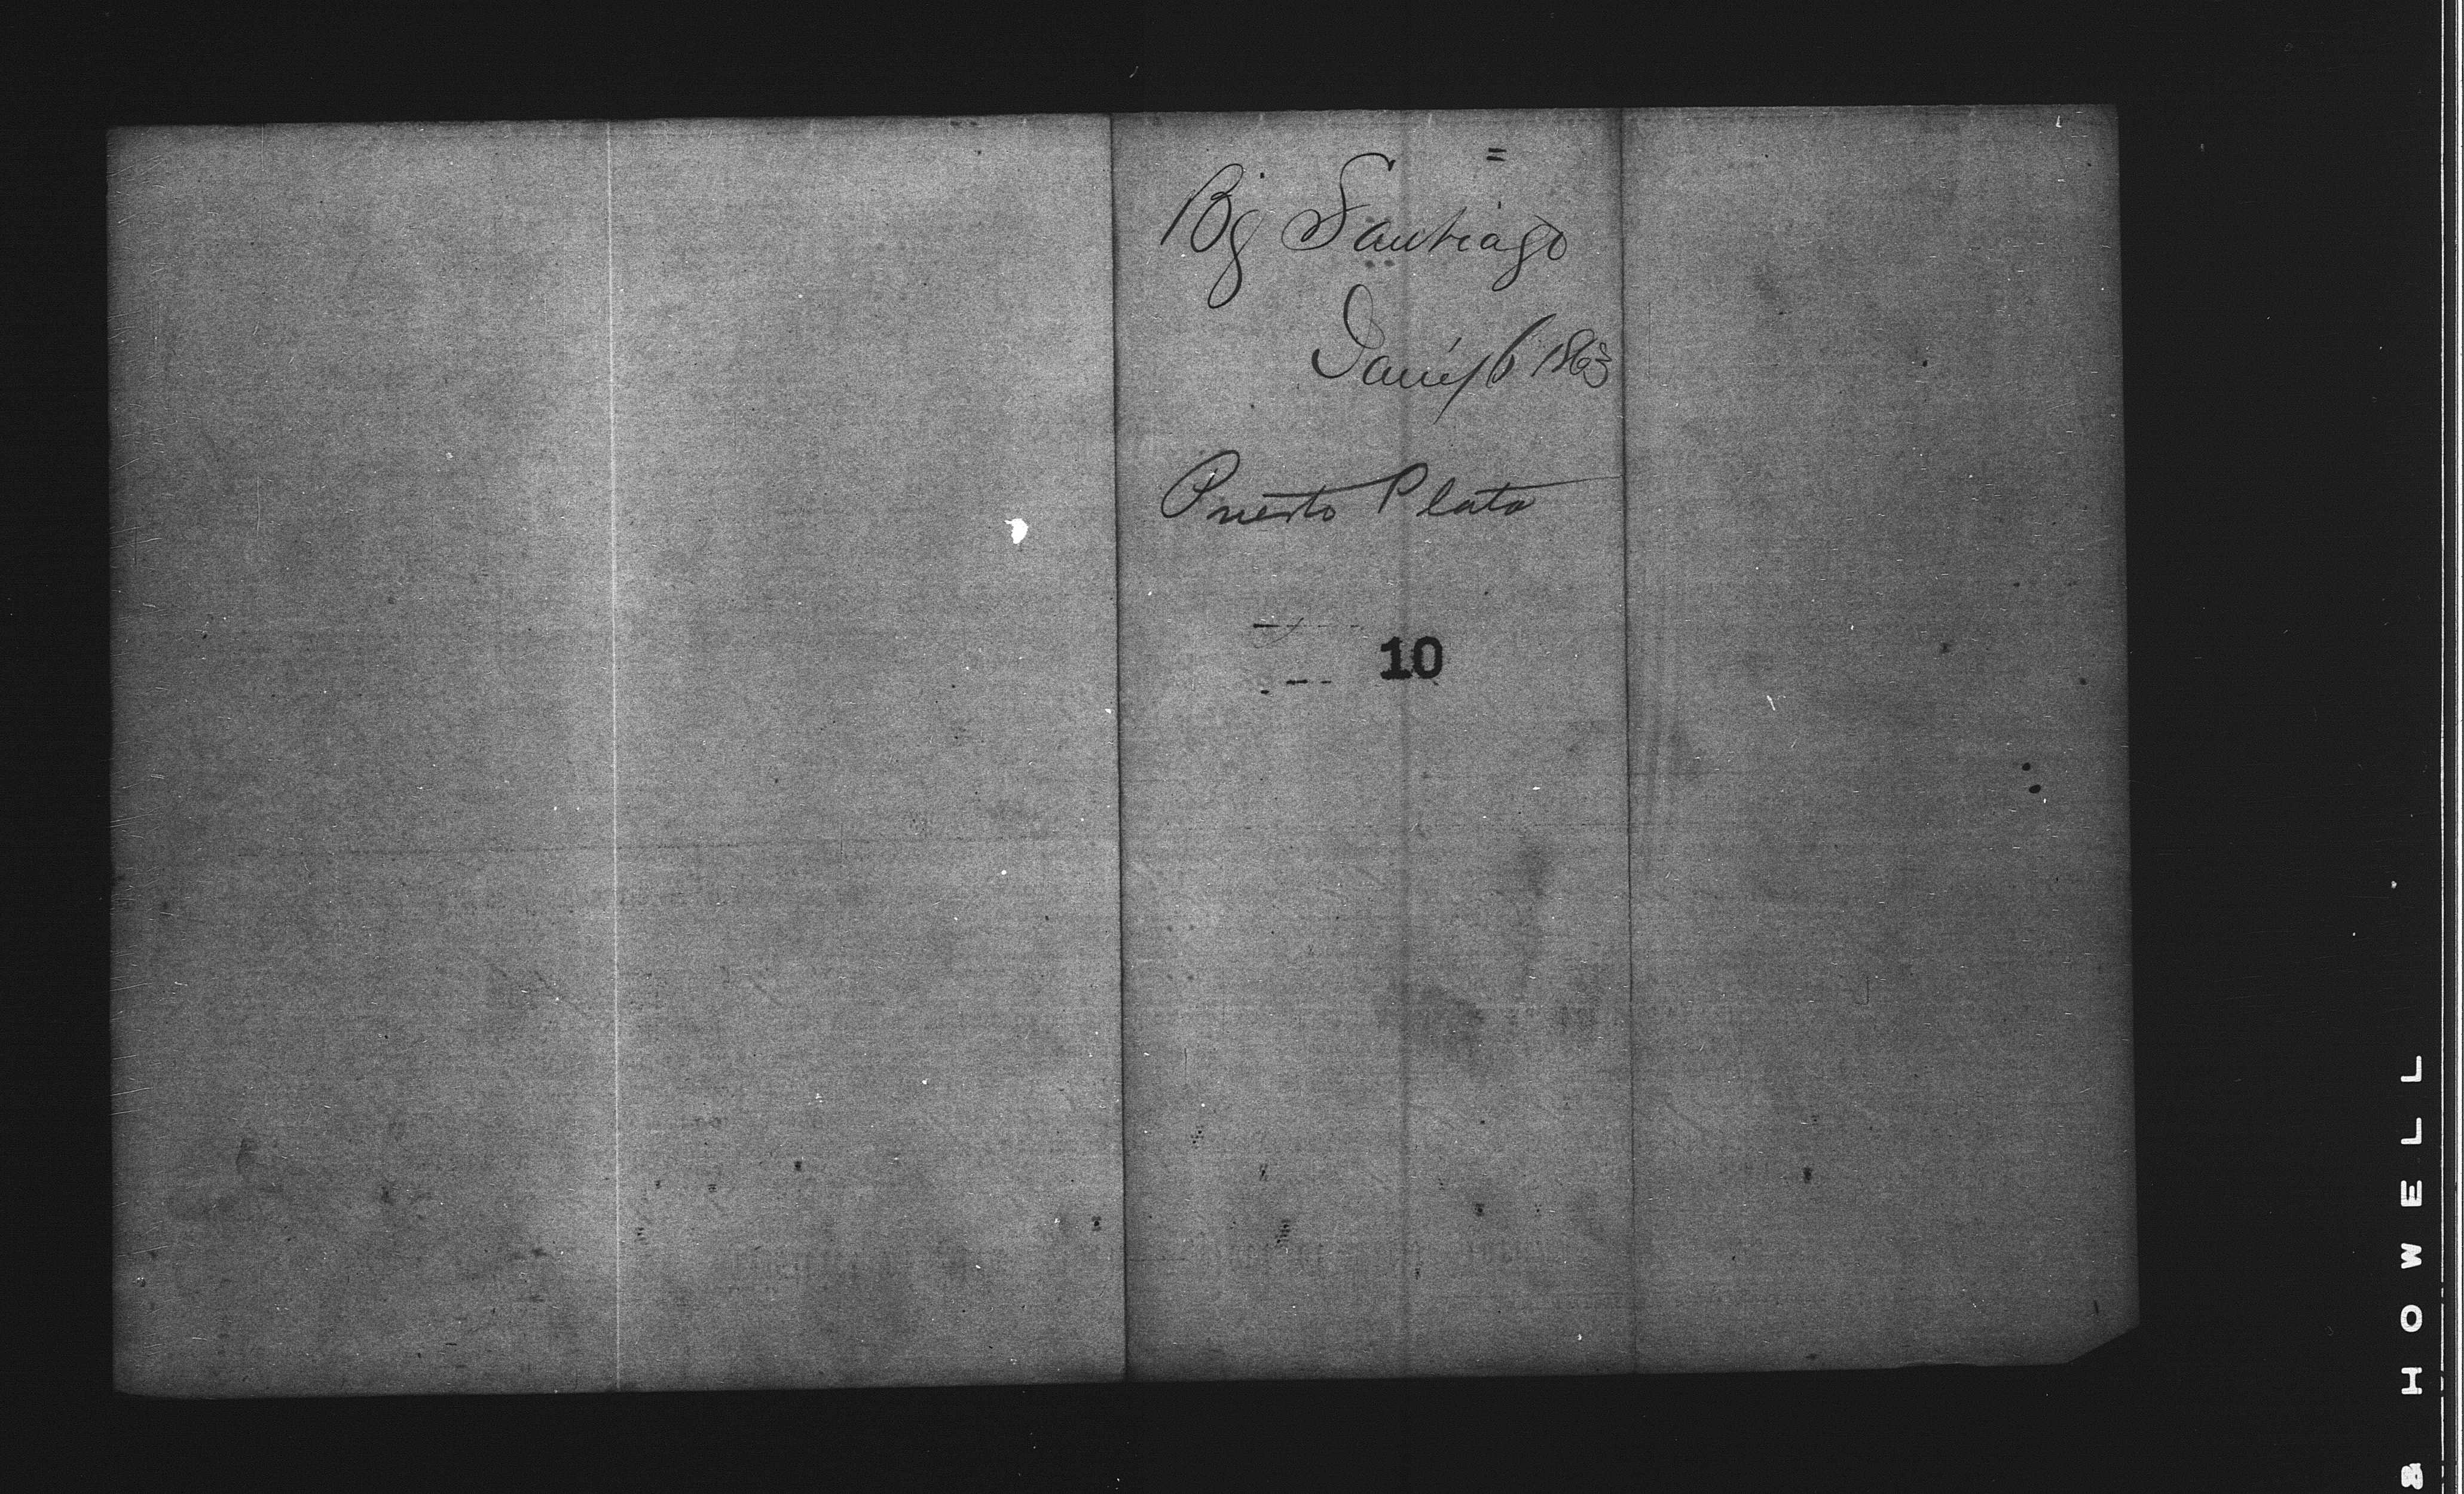 Bg Santiago
Jany 6 1863
Puerto Plata
10
& HOWELL